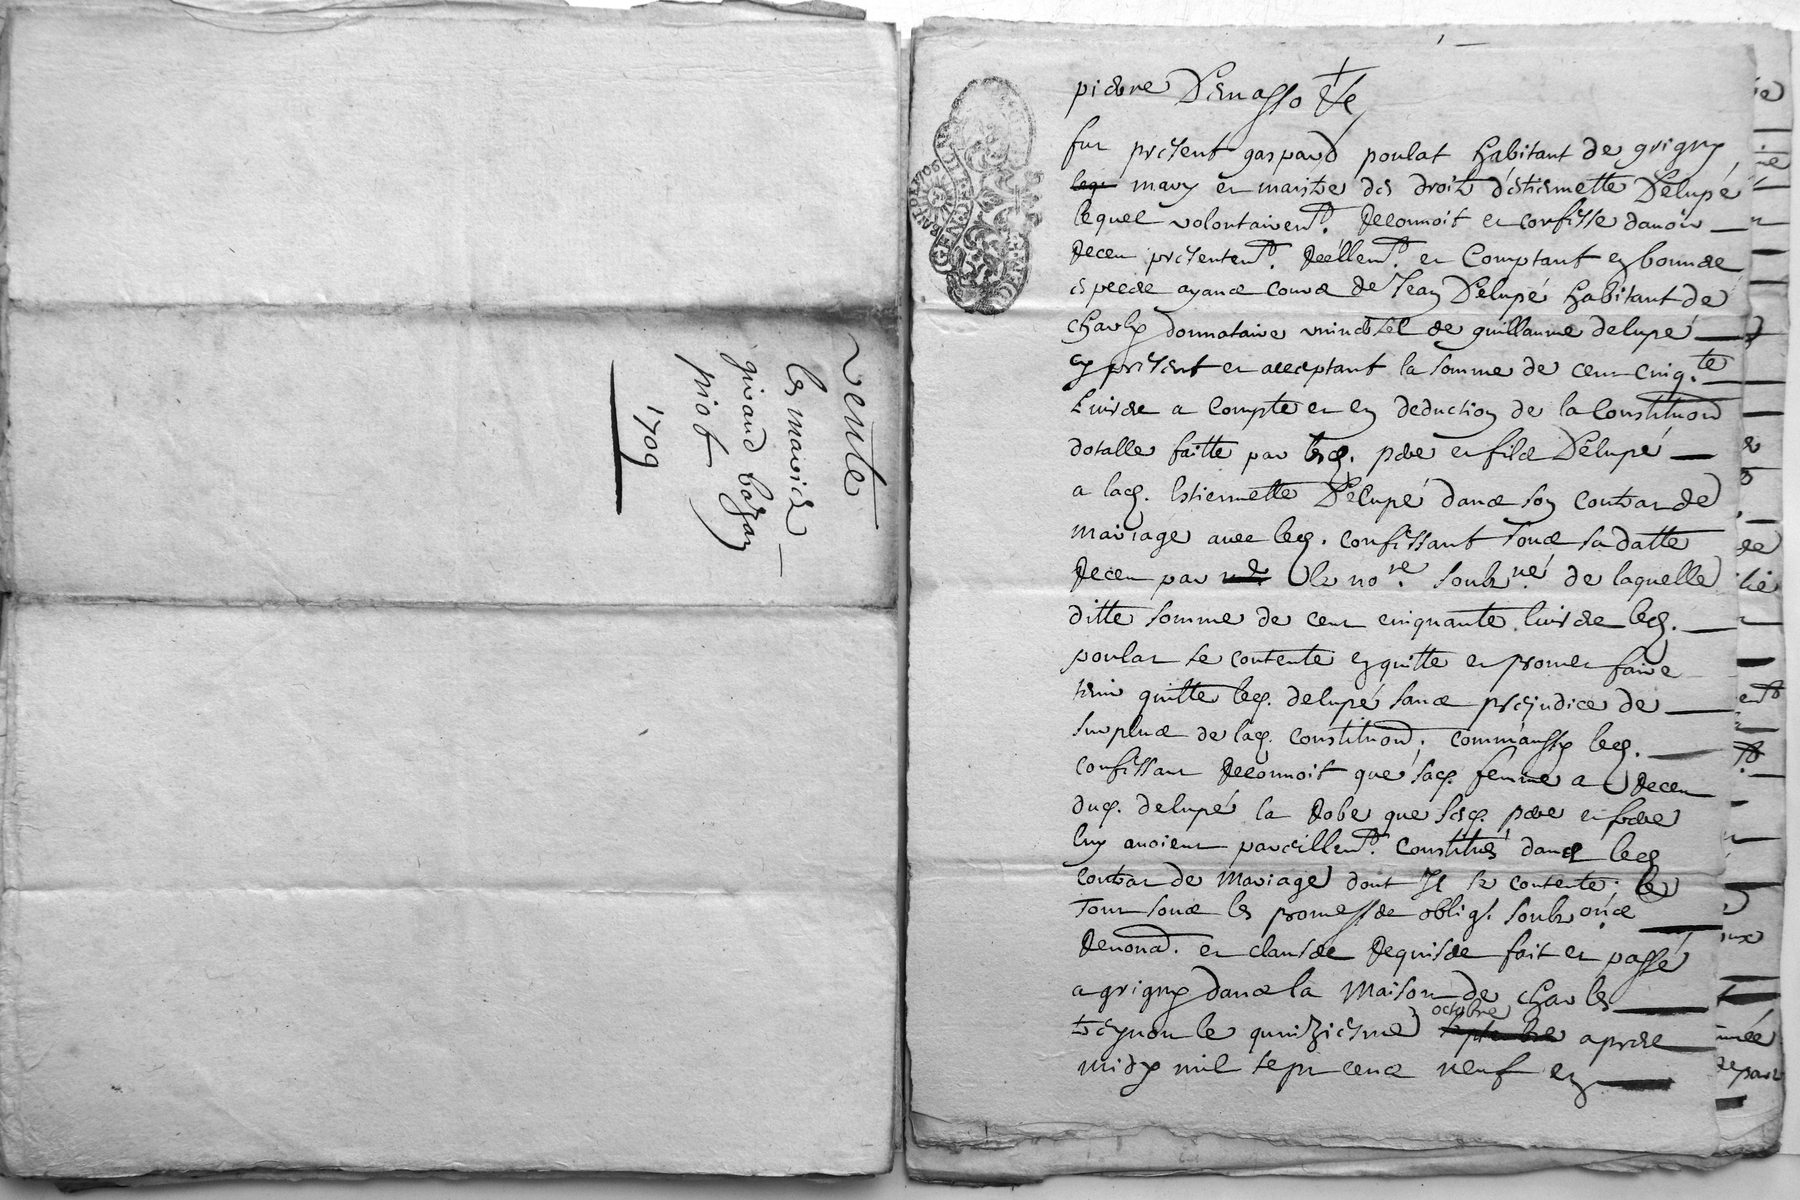 vente
les mariés
giraud bazan
piot
1709
pierre
fut présent gaspard poulat habitant de grigny
mary et maistre des droitz d'estiennette Delupé
lequel volontairem.t reconnoit et confesse d'avoir
receu présentem.t réellem.t et comptant en bonnes
espèces ayans cours de Jean Delupé habitant de
charly donnataire universel de guillaume delupé
cy présent et acceptant la somme de cent cinq.te
livres a compte et en deduction de la constituon
dotalle faitte par lesd. père et fils Delupé
a lad. Estiennette Delupé dans son contrat de
mariage avec led. confessant sous sa datte
receu par le no.re soubz.né de laquelle
ditte somme de cent cinquante livres led.
poulat se contente en quitte et promet faire
tenir quitte led. delupé sans préjudice de
surplus de lad. constituon. comm'aussy led.
confessant reconnoit que sad. femme a receu
dud. delupé la robe que sesd. père et frère
luy avoient pareillem.t constitués dans led.
contrat de mariage dont Il se contente; le
tout sous les promesses oblig. soubz
renon. et clauses requises fait et passé
a grigny dans la maison de charles
le quinziesme octobre après
midy mil sept cens neuf en